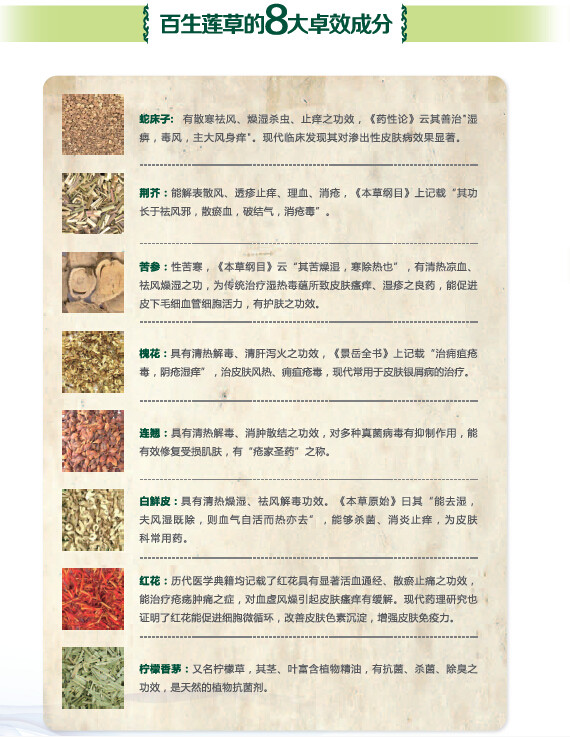 百生莲草的8大卓效成分
蛇床子: 有散寒祛风、燥湿杀虫、止痒之功效，《药性论》云其善治"湿
痹，毒风，主大风身痒"。现代临床发现其对渗出性皮肤病效果显著。
荆芥：能解表散风、透疹止痒、理血、消疮，《本草纲目》上记载“其功
长于祛风邪，散瘀血，破结气，消疮毒”。
苦参：性苦寒，《本草纲目》云“其苦燥湿，寒除热也”，有清热凉血、
祛风燥湿之功，为传统治疗湿热毒蕴所致皮肤瘙痒、湿疹之良药，能促进
皮下毛细血管细胞活力，有护肤之功效。
槐花：具有清热解毒、清肝泻火之功效，《景岳全书》上记载“治痈疽疮
毒，阴疮湿痒”，治皮肤风热、痈疽疮毒，现代常用于皮肤银屑病的治疗。
连翘：具有清热解毒、消肿散结之功效，对多种真菌病毒有抑制作用，能
有效修复受损肌肤，有“疮家圣药”之称。
白鲜皮：具有清热燥湿、祛风解毒功效。《本草原始》曰其“能去湿，
夫风湿既除，则血气自活而热亦去”，能够杀菌、消炎止痒，为皮肤
科常用药。
红花：历代医学典籍均记载了红花具有显著活血通经、散瘀止痛之功效，
能治疗疮疡肿痛之症，对血虚风燥引起皮肤瘙痒有缓解。现代药理研究也
证明了红花能促进细胞微循环，改善皮肤色素沉淀，增强皮肤免疫力。
柠檬香茅：又名柠檬草，其茎、叶富含植物精油，有抗菌、杀菌、除臭之
功效，是天然的植物抗菌剂。